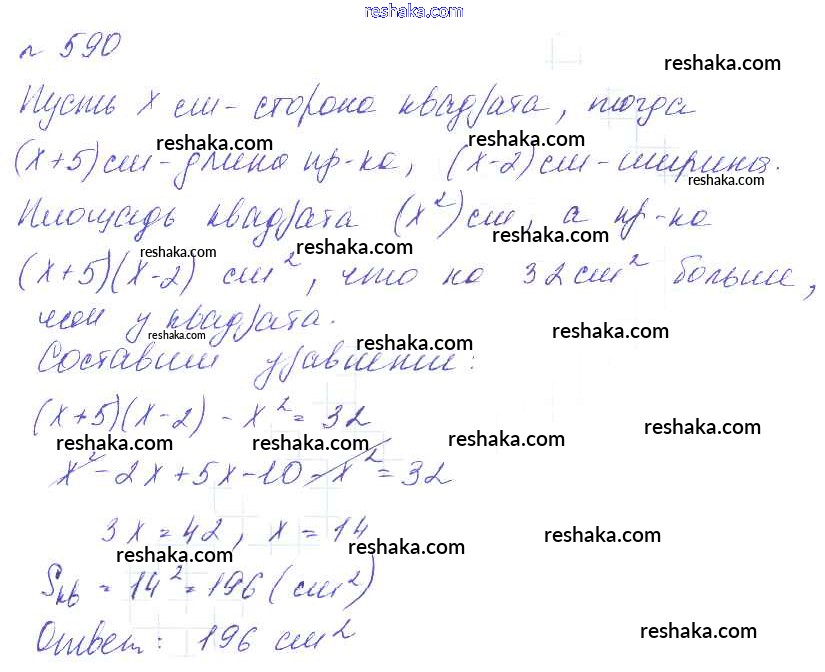 reshaka.com
№ 590
reshaka.com
Пусть x см - сторона квадрата, тогда
reshaka.com reshaka.com
(x+5) см - длина пр-ка, (x-2) см - ширина.
reshaka.com
Площадь квадрата (x²) см, а пр-ка
reshaka.com reshaka.com reshaka.com
(x+5)(x-2) см², что на 32 см² больше,
чем у квадрата.
reshaka.com reshaka.com reshaka.com
Составим уравнение:
(x+5)(x-2) - x² = 32
reshaka.com reshaka.com reshaka.com reshaka.com
x² - 2x + 5x - 10 - x² = 32
3x = 42, x = 14
reshaka.com reshaka.com reshaka.com
Sкв = 14² = 196 (см²)
Ответ: 196 см²
reshaka.com